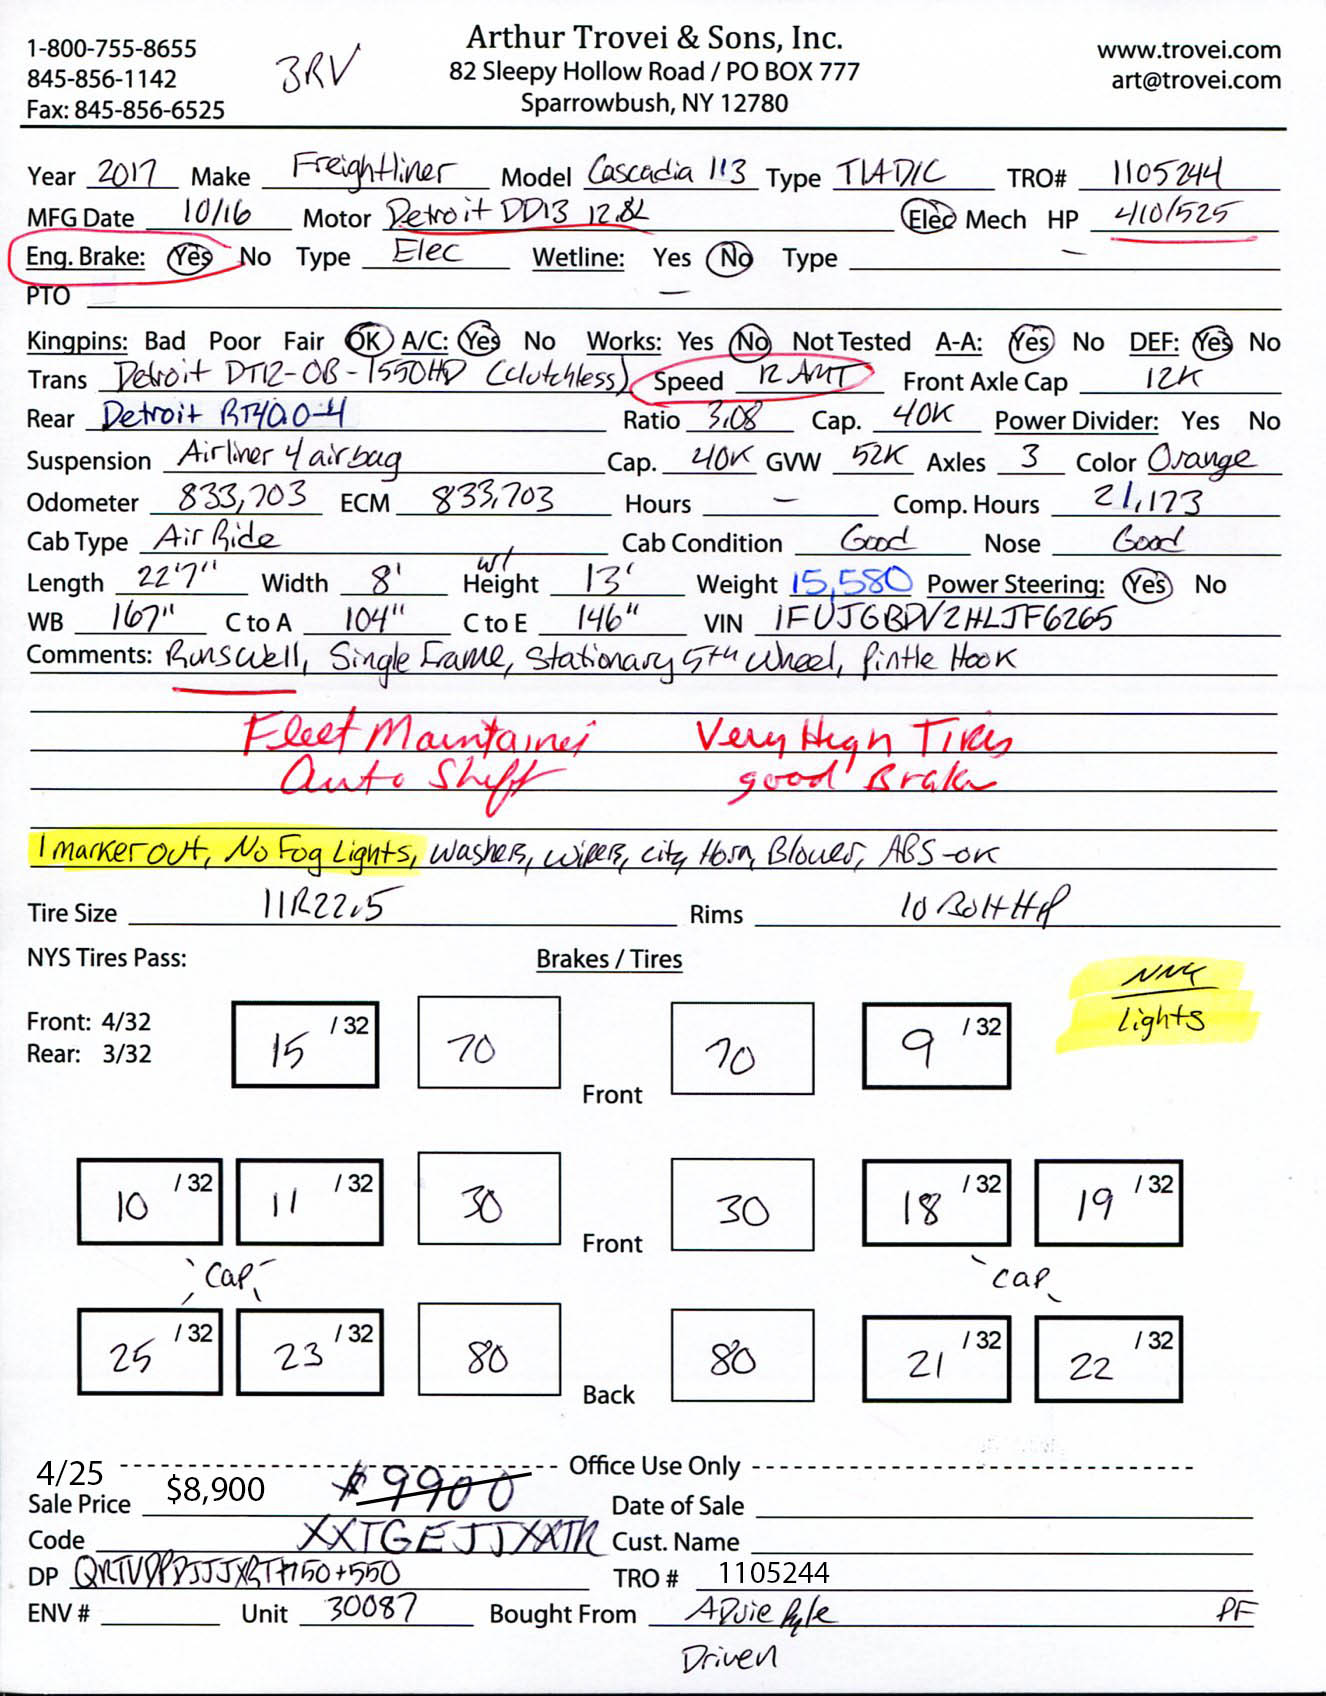 1-800-755-8655
845-856-1142
Fax: 845-856-6525
3RV
Arthur Trovei & Sons, Inc.
82 Sleepy Hollow Road / PO BOX 777
Sparrowbush, NY 12780
www.trovei.com
art@trovei.com
Year 2017 Make Freightliner Model Cascadia 113 Type T/A D/C TRO# 1105244
MFG Date 10/16 Motor Detroit DD13 12.8L Elec Mech HP 410/525
Eng. Brake: Yes No Type Elec Wetline: Yes No Type —
PTO —
Kingpins: Bad Poor Fair OK A/C: Yes No Works: Yes No Not Tested A-A: Yes No DEF: Yes No
Trans Detroit DT12-OB-1550HD (Clutchless) Speed 12 AMT Front Axle Cap 12K
Rear Detroit RT40.0-4 Ratio 3.08 Cap. 40K Power Divider: Yes No
Suspension Airliner 4 airbag Cap. 40K GVW 52K Axles 3 Color Orange
Odometer 833,703 ECM 833,703 Hours — Comp. Hours 21,173
Cab Type Air Ride Cab Condition Good Nose Good
Length 22'7" Width 8' w/ Height 13' Weight 15,580 Power Steering: Yes No
WB 167" C to A 104" C to E 146" VIN 1FUJGBDV2HLJF6265
Comments: Runs Well, Single Frame, Stationary 5th Wheel, Pintle Hook
Fleet Maintained Very High Tires
Auto Shift good Brakes
1 marker out, No Fog Lights, Washers, Wipers, City Horn, Blower, ABS-ok
Tire Size 11R22.5 Rims 10 Bolt HP
NYS Tires Pass:
Brakes / Tires
Lights
Front: 4/32
Rear: 3/32
15 /32 70 Front 70 9 /32
10 /32 11 /32 30 Front 30 18 /32 19 /32
Cap Cap
25 /32 23 /32 80 Back 80 21 /32 22 /32
4/25 Office Use Only
Sale Price $8,900 $9900 Date of Sale
Code XXTGEJJXXTR Cust. Name
DP TRO # 1105244
ENV # Unit 30087 Bought From PF
Driven